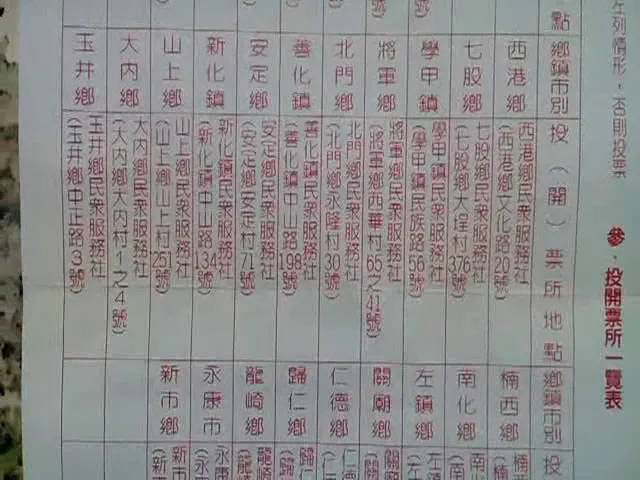 左列情形，否則投票
參、投開票所一覽表
點
號）
號）
鄉鎮市別
西港鄉
七股鄉
學甲鎮
將軍鄉
北門鄉
善化鎮
安定鄉
新化鎮
山上鄉
大內鄉
玉井鄉
投（開）票所地點
西港鄉民衆服務社
（西港鄉文化路20號）
七股鄉民衆服務社
（七股鄉大埕村376號）
學甲鎮民衆服務社
（學甲鎮民族路56號）
將軍鄉民衆服務社
（將軍鄉西華村65之41號）
北門鄉民衆服務社
（北門鄉永隆村30號）
善化鎮民衆服務社
（善化鎮中山路198號）
安定鄉民衆服務社
（安定鄉安定村71號）
新化鎮民衆服務社
（新化鎮中山路134號）
山上鄉民衆服務社
（山上鄉山上村251號）
大內鄉民衆服務社
（大內鄉大內村1之4號）
玉井鄉民衆服務社
（玉井鄉中正路3號）
鄉鎮市別
楠西鄉
南化鄉
左鎮鄉
關廟鄉
仁德鄉
歸仁鄉
龍崎鄉
永康市
新市鄉
投
楠西
（楠
南化
（南
左鎮
（左
關廟
（關
仁德
（仁
歸仁
（歸
龍崎
（龍
永康
（永
新市
（新